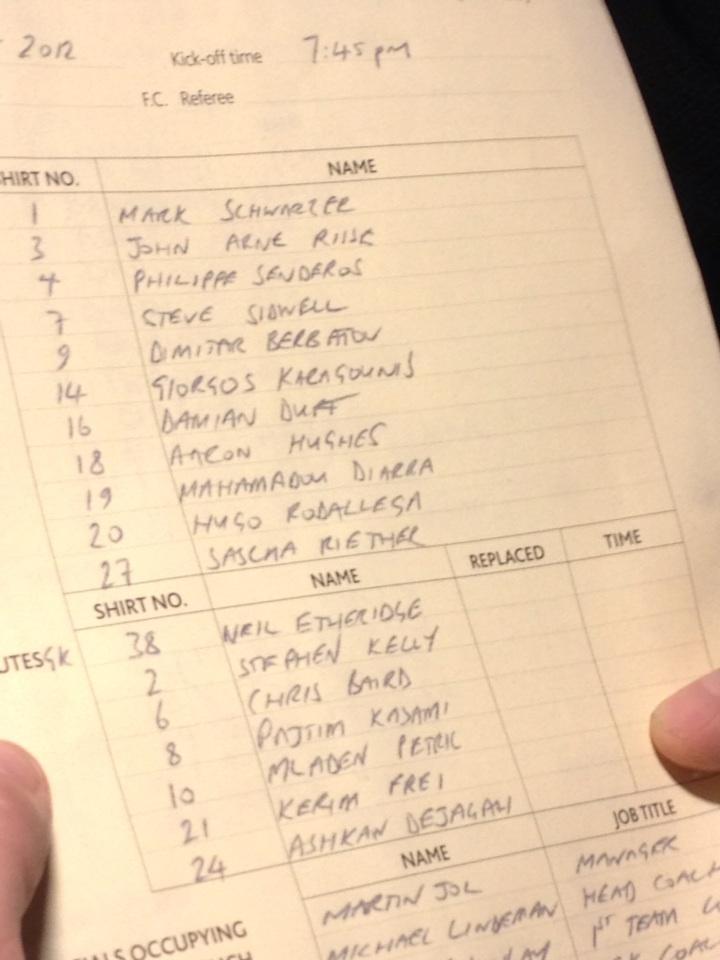 2012 Kick-off time 7:45pm
F.C. Referee
SHIRT NO. NAME
1 MARK SCHWARZER
3 JOHN ARNE RIISE
4 PHILIPPE SENDEROS
7 STEVE SIDWELL
9 DIMITAR BERBATOV
14 GIORGOS KARAGOUNIS
16 DAMIAN DUFF
18 AARON HUGHES
19 MAHAMADOU DIARRA
20 HUGO RODALLEGA
27 SASCHA RIETHER
SHIRT NO. NAME REPLACED TIME
UTES GK 38 NEIL ETHERIDGE
2 STEPHEN KELLY
6 CHRIS BAIRD
8 PAJTIM KASAMI
10 MLADEN PETRIC
21 KERIM FREI
24 ASHKAN DEJAGAH
NAME JOB TITLE
MARTIN JOL MANAGER
IALS OCCUPYING MICHAEL LINDEMAN HEAD COACH
1ST TEAM